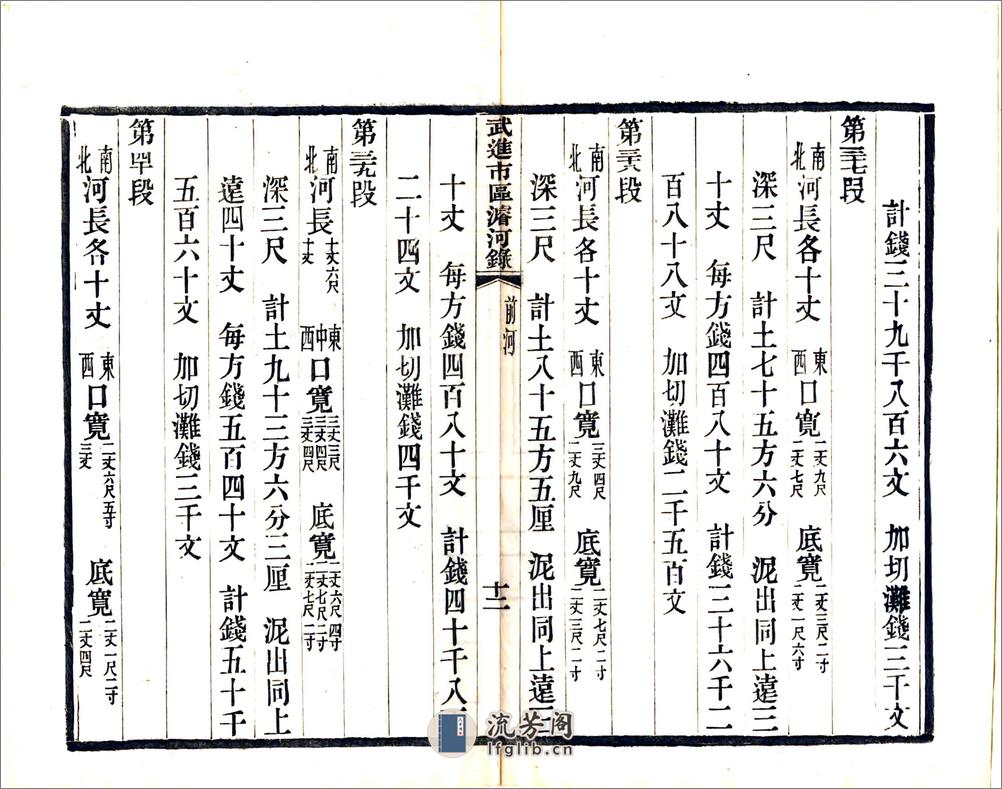 計錢三十九千八百六文　加切灘錢三千文
第三十七段
南北河長各十丈　東西口寬二丈九尺二丈七尺　底寬二丈三尺二寸二丈一尺六寸
深三尺　計土七十五方六分　泥出同上遠三
十丈　每方錢四百八十文　計錢三十六千二
百八十八文　加切灘錢二千五百文
第三十八段
南北河長各十丈　東西口寬三丈四尺二丈九尺　底寬二丈七尺二寸二丈三尺二寸
深三尺　計土八十五方五厘　泥出同上遠三
武進市區濬河錄　前河　十二
十丈　每方錢四百八十文　計錢四十千八百
二十四文　加切灘錢四千文
第三十九段
南北河長十丈六尺十丈　東中西口寬三丈三尺三丈四尺三丈四尺　底寬二丈六尺四寸二丈七尺二寸二丈七尺二寸
深三尺　計土九十三方六分三厘　泥出同上
遠四十丈　每方錢五百四十文　計錢五十千
五百六十文　加切灘錢三千文
第四十段
南北河長各十丈　東西口寬二丈六尺五寸三丈　底寬二丈一尺二寸二丈四尺
流芳阁
lfglib.cn